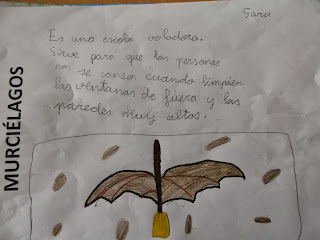 Sara
Es una escoba voladora.
Sirve para que las personas
no se cansen cuando limpien
las ventanas de fuera y las
paredes muy altas.
MURCIÉLAGOS